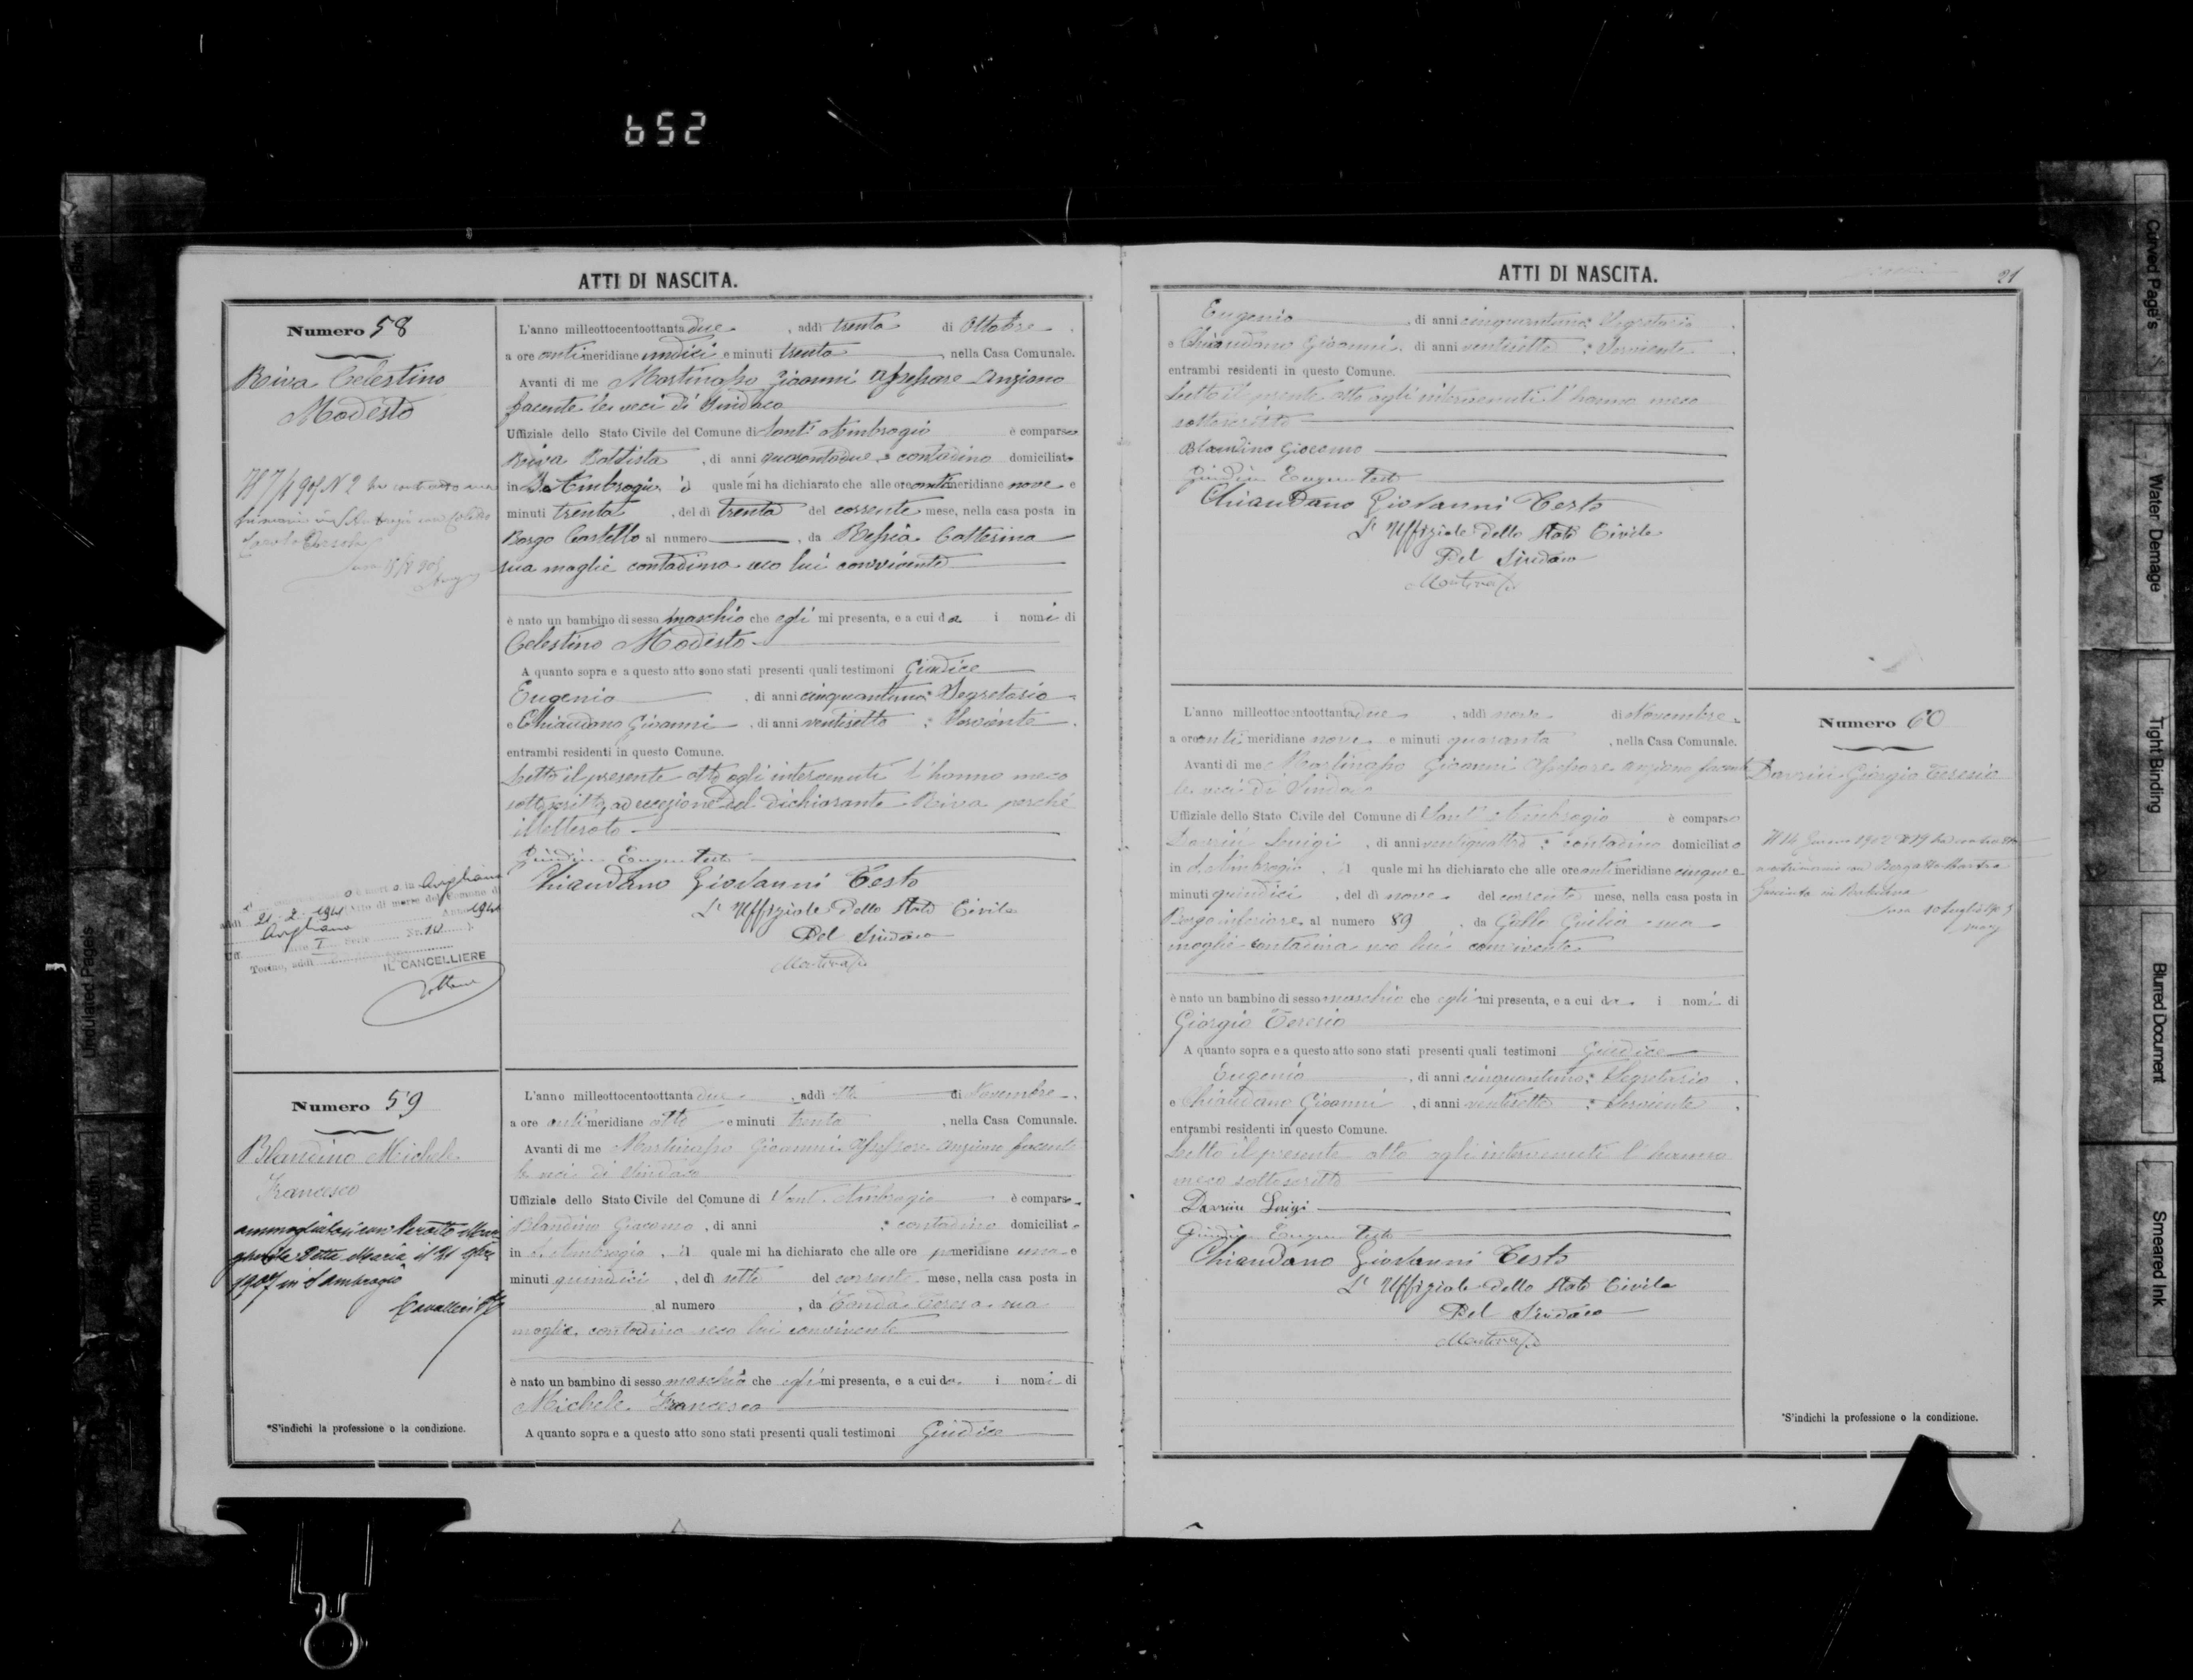 652
ATTI DI NASCITA.
Numero 58
Reiva Celestino
Modesto
L'anno milleottocentoottanta due, addì trenta di Ottobre
a ore antimeridiane undici e minuti trenta, nella Casa Comunale.
Avanti di me Martinasso Giovanni Assessore Anziano
facente le veci di Sindaco
Uffiziale dello Stato Civile del Comune di Sant' Ambrogio è comparso
Reiva Battista, di anni quarantadue : contadino domiciliato
in S. Ambrogio, il quale mi ha dichiarato che alle ore antimeridiane nove e
minuti trenta, del dì trenta del corrente mese, nella casa posta in
Borgo Castello al numero, da Ressia Catterina
sua moglie contadina seco lui convivente
è nato un bambino di sesso maschio che egli mi presenta, e a cui da i nomi di
Celestino Modesto
A quanto sopra e a questo atto sono stati presenti quali testimoni Giudice
Eugenio, di anni cinquantuno : Segretario
e Chiaudano Giovanni, di anni ventisette : Serviente
entrambi residenti in questo Comune.
Letto il presente atto agli intervenuti l'hanno meco
sottoscritto, ad eccezione del dichiarante Reiva perché
illetterato
Giudice Eugenio Teste
Chiaudano Giovanni Testo
L' Uffiziale dello Stato Civile
Pel Sindaco
Martinasso
Avigliana
21-2-1941 Atto di morte del Comune di
Avigliana Anno 1941
I Serie Nr. 10
Torino, addì
IL CANCELLIERE
Numero 59
Blandino Michele
Francesco
1907 in S. Ambrogio
L'anno milleottocentoottanta due, addì otto di Novembre
a ore antimeridiane otto e minuti trenta, nella Casa Comunale.
Avanti di me Martinasso Giovanni Assessore Anziano facente
le veci di Sindaco
Uffiziale dello Stato Civile del Comune di Sant' Ambrogio è comparso
Blandino Giacomo, di anni : contadino domiciliato
in S. Ambrogio, il quale mi ha dichiarato che alle ore pomeridiane una e
minuti quindici, del dì sette del corrente mese, nella casa posta in
al numero, da Tonda Teresa sua
moglie, contadina seco lui convivente
è nato un bambino di sesso maschio che egli mi presenta, e a cui da i nomi di
Michele Francesco
A quanto sopra e a questo atto sono stati presenti quali testimoni Giudice
*S'indichi la professione o la condizione.
ATTI DI NASCITA.
21
Eugenio, di anni cinquantuno : Segretario
e Chiaudano Giovanni, di anni ventisette : Serviente
entrambi residenti in questo Comune.
Letto il presente atto agli intervenuti l'hanno meco
sottoscritto
Blandino Giacomo
Giudice Eugenio Teste
Chiaudano Giovanni Testo
L' Uffiziale dello Stato Civile
Pel Sindaco
Martinasso
Numero 60
Giorgio Teresio
L'anno milleottocentoottanta due, addì nove di Novembre
a ore antimeridiane nove e minuti quaranta, nella Casa Comunale.
Avanti di me Martinasso Giovanni Assessore anziano facente
le veci di Sindaco
Uffiziale dello Stato Civile del Comune di Sant' Ambrogio è comparso
Luigi, di anni ventiquattro : contadino domiciliato
in S. Ambrogio, il quale mi ha dichiarato che alle ore antimeridiane cinque e
minuti quindici, del dì nove del corrente mese, nella casa posta in
Borgo inferiore al numero 89, da Gallo Giulia sua
moglie contadina seco lui convivente
è nato un bambino di sesso maschio che egli mi presenta, e a cui da i nomi di
Giorgio Teresio
A quanto sopra e a questo atto sono stati presenti quali testimoni Giudice
Eugenio, di anni cinquantuno : Segretario
e Chiaudano Giovanni, di anni ventisette : Serviente
entrambi residenti in questo Comune.
Letto il presente atto agli intervenuti l'hanno
meco sottoscritto
Luigi
Giudice Eugenio Teste
Chiaudano Giovanni Testo
L' Uffiziale dello Stato Civile
Pel Sindaco
Martinasso
*S'indichi la professione o la condizione.
Curved Page's
Water Demage
Tight Binding
Blurred Document
Smeared Ink
Undulated Pages